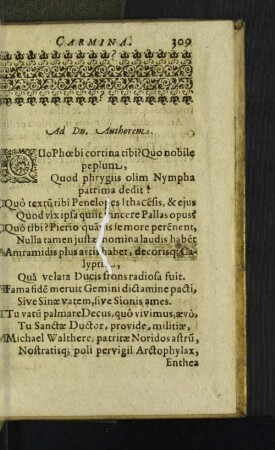 CARMINA. 309
Ad Dn. Authorem.
QUo Phœbi cortina tibi? Quo nobile
peplum,
Quod phrygiis olim Nympha
patrima dedit?
Quò textũ tibi Penelopes Ithacesis, & ejus
Quod vix ipsa quiit vincere Pallas opus?
Quò tibi? Pierio quãvis femore perẽnent,
Nulla tamen justæ nomina laudis habẽt
Amramidis plus artis habet, decorisq; Ca-
lyptra,
Quâ velata Ducis frons radiosa fuit.
Fama fidẽ meruit Gemini dictamine pacti,
Sive Sinæ vatem, sive Sionis ames.
Tu vatũ palmare Decus, quô vivimus, ævô,
Tu Sanctæ Ductor, provide, militiæ,
Michael Walthere, patriæ Noridos astrũ,
Nostratisq; poli pervigil Arctophylax,
Enthea